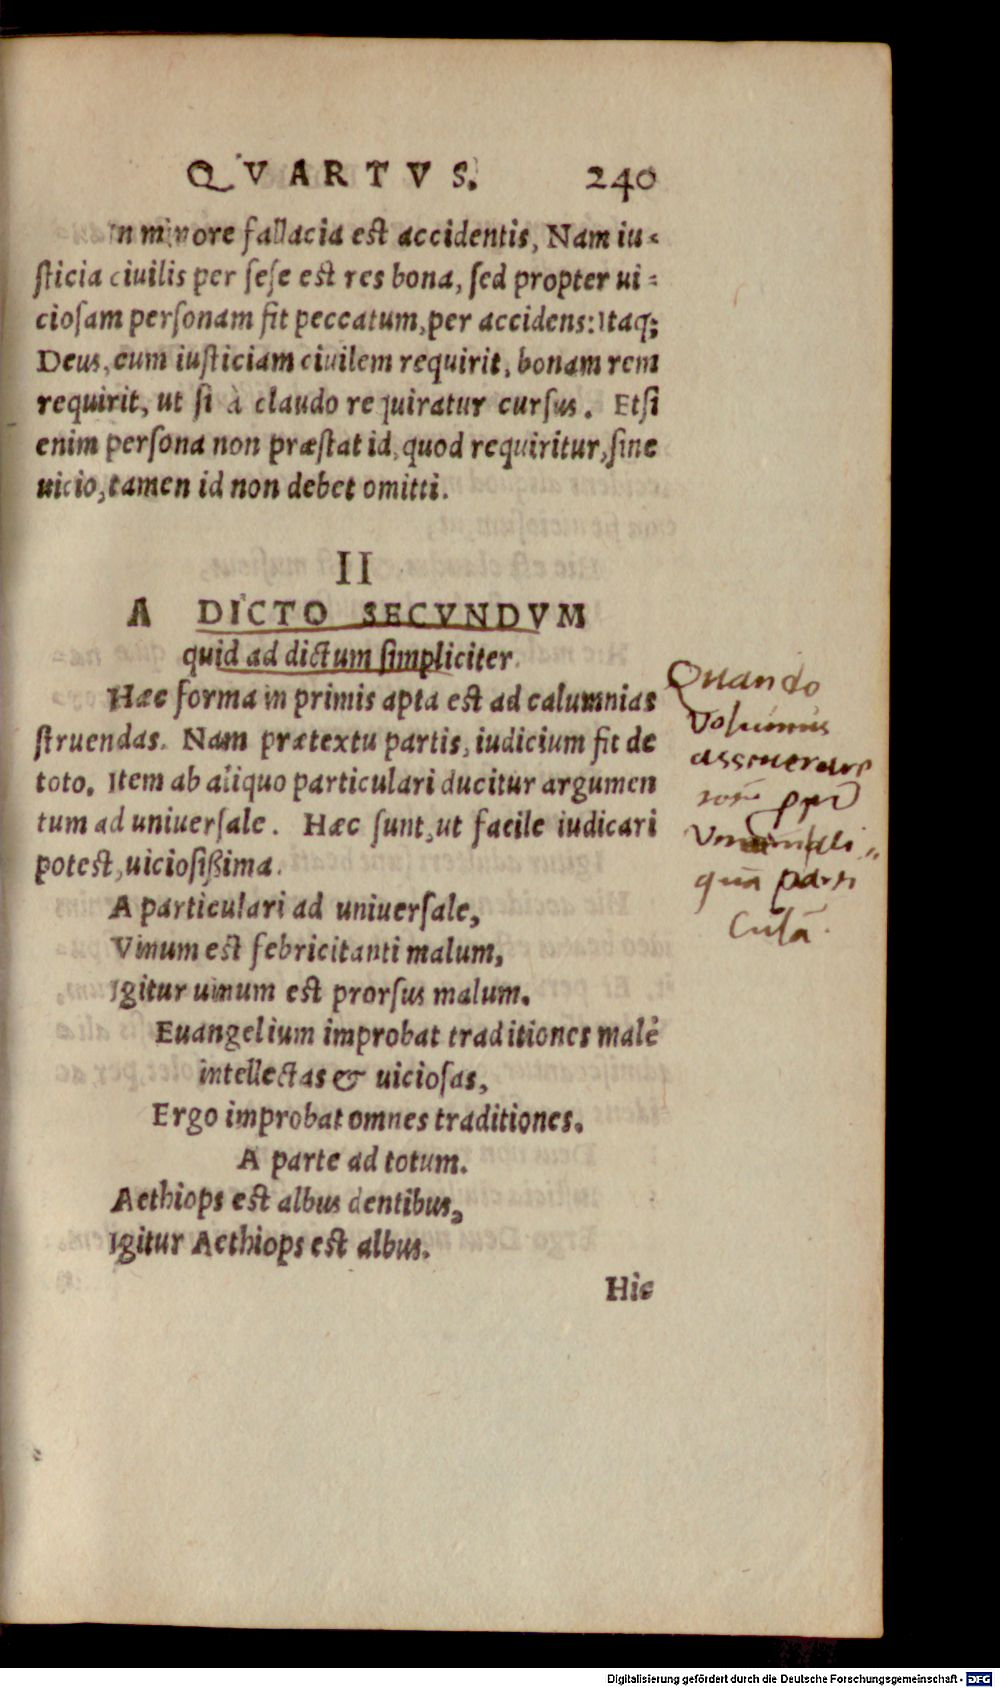 QVARTVS. 240
In minore fallacia est accidentis, Nam iu-
sticia ciuilis per sese est res bona, sed propter ui-
ciosam personam fit peccatum, per accidens: Itaq;
Deus, cum iusticiam ciuilem requirit, bonam rem
requirit, ut si à claudo requiratur cursus. Etsi
enim persona non præstat id, quod requiritur, sine
uicio, tamen id non debet omitti.
II
A DICTO SECVNDVM
quid ad dictum simpliciter.
Hæc forma in primis apta est ad calumnias
struendas. Nam prætextu partis, iudicium fit de
toto. Item ab aliquo particulari ducitur argumen
tum ad uniuersale. Hæc sunt, ut facile iudicari
potest, uiciosißima.
A particulari ad uniuersale,
Vinum est febricitanti malum,
Igitur uinum est prorsus malum.
Euangelium improbat traditiones malè
intellectas & uiciosas,
Ergo improbat omnes traditiones.
A parte ad totum.
Aethiops est albus dentibus,
Igitur Aethiops est albus.
Hic
Quando
Volumus
asseuerare
quā parti
culā
Digitalisierung gefördert durch die Deutsche Forschungsgemeinschaft - DFG